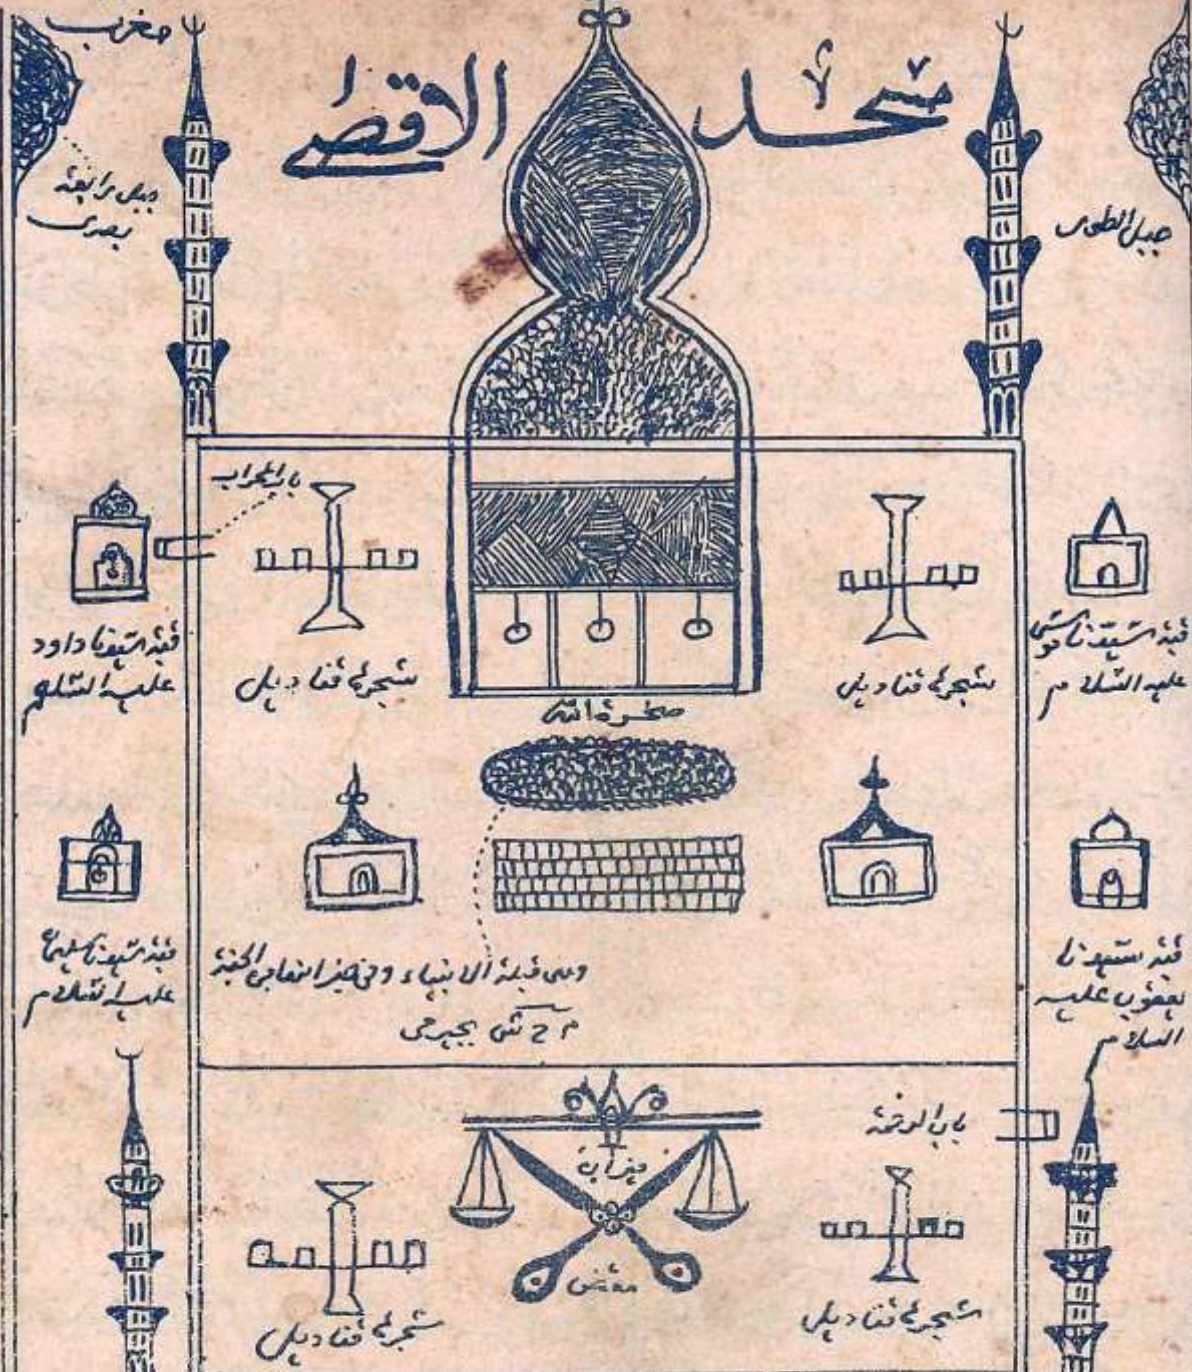 مغرب
مسجد الاقصى
جبل رابعة
بصرى
جبل الطور
باب المحراب
قبة سيدنا داود
عليه السلام
شجرة قناديل
شجرة قناديل
قبة سيدنا موسى
عليه السلام
صخرة الله
قبة سيدنا سليمان
عليه السلام
وهى قبلة الانبياء
الجنة
قبة سيدنا
يعقوب عليه
السلام
باب الرحمة
ميزان
مقص
شجرة قناديل
شجرة قناديل